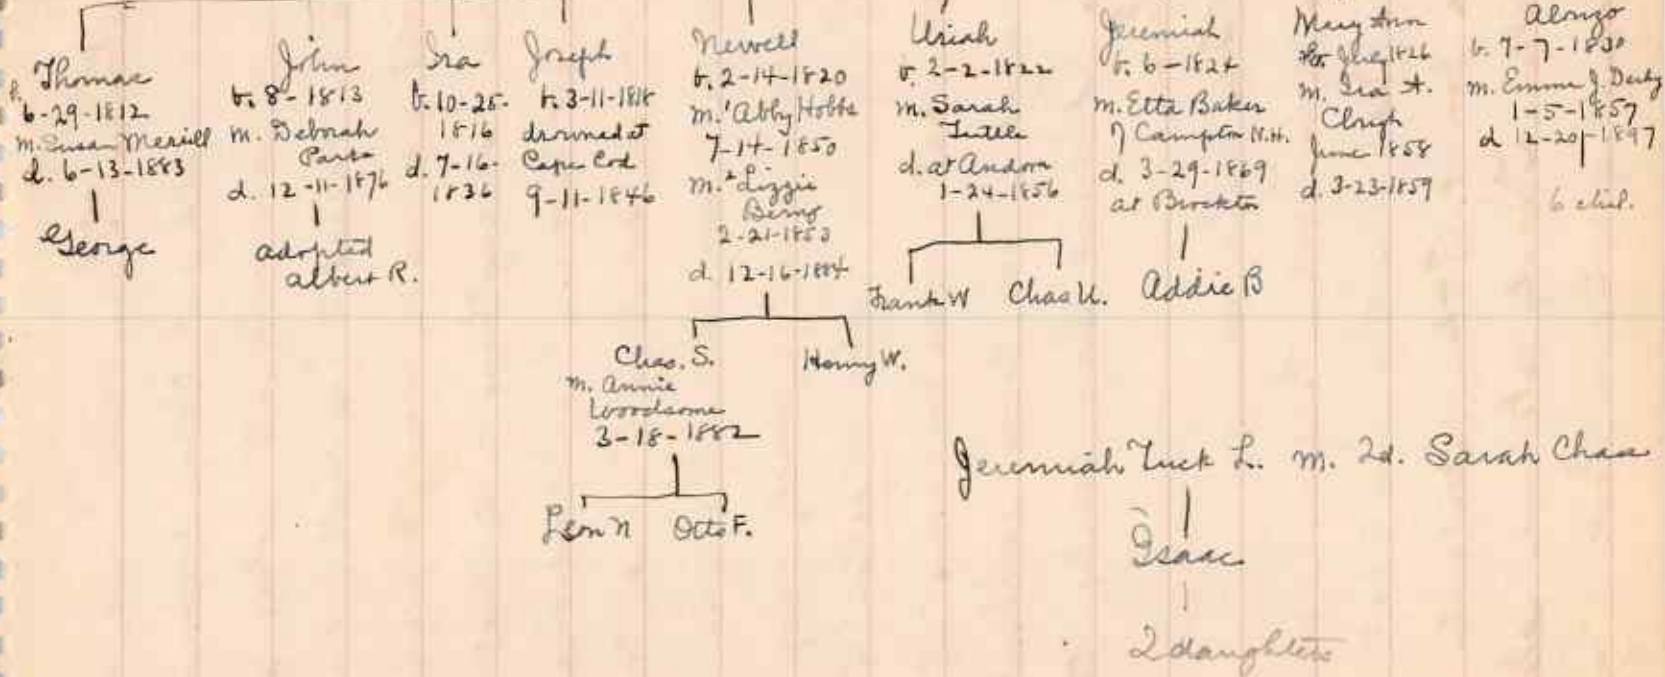 Thomas
b.
6-29-1812
m. Susan Merrill
d. 6-13-1883
George
John
b. 8-1813
m. Deborah
d. 12-11-1876
adopted
Albert R.
Ira
b. 10-25-
1816
d. 7-16-
1836
Joseph
b. 3-11-1818
drowned at
Cape Cod
9-11-1846
Newell
b. 2-14-1820
m.¹ Abby Hobbs
7-14-1850
m.² Lizzie
2-21-1853
d. 12-16-1884
Chas. S.
m. Annie
Woodsome
3-18-1882
Leon N
Otto F.
Henry W.
Uriah
b. 2-2-1822
m. Sarah
Tuttle
d. at Andova
1-24-1856
Frank W
Chas U.
Jeremiah
b. 6-1824
m. Etta Baker
of Campton N.H.
d. 3-29-1869
at Brockton
Addie B
Mary Ann
b. July 1826
m. Ira A.
Clough
June 1858
d. 3-23-1859
Alonzo
b. 7-7-1830
m. Emma J. Derby
1-5-1857
d 12-20-1897
6 chil.
Jeremiah Tuck L. m. 2d. Sarah Chase
Isaac
2 daughters